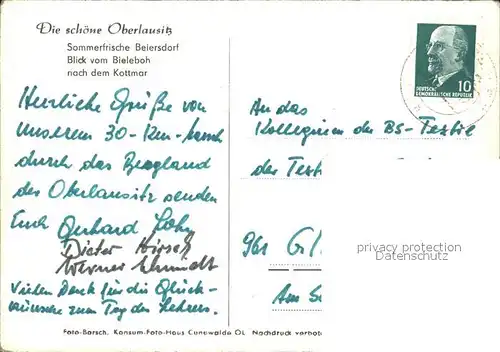 Die schöne Oberlausitz
Sommerfrische Beiersdorf
Blick vom Bieleboh
nach dem Kottmar
DEUTSCHE
DEMOKRATISCHE REPUBLIK
10
Herzliche Grüße von
unserem 30-Km-Marsch
durch das Bergland
der Oberlausitz senden
Euch Gerhard
Dieter Hirsch
Werner Schmidt
Vielen Dank für die Glück-
wünsche zum Tag des Lehrers.
An das
Kollegium der BS-Textil
der Text
961 Gl
Am
privacy protection
Datenschutz
Foto-Barsch, Konsum-Foto-Haus Cunewalde OL Nachdruck verbot